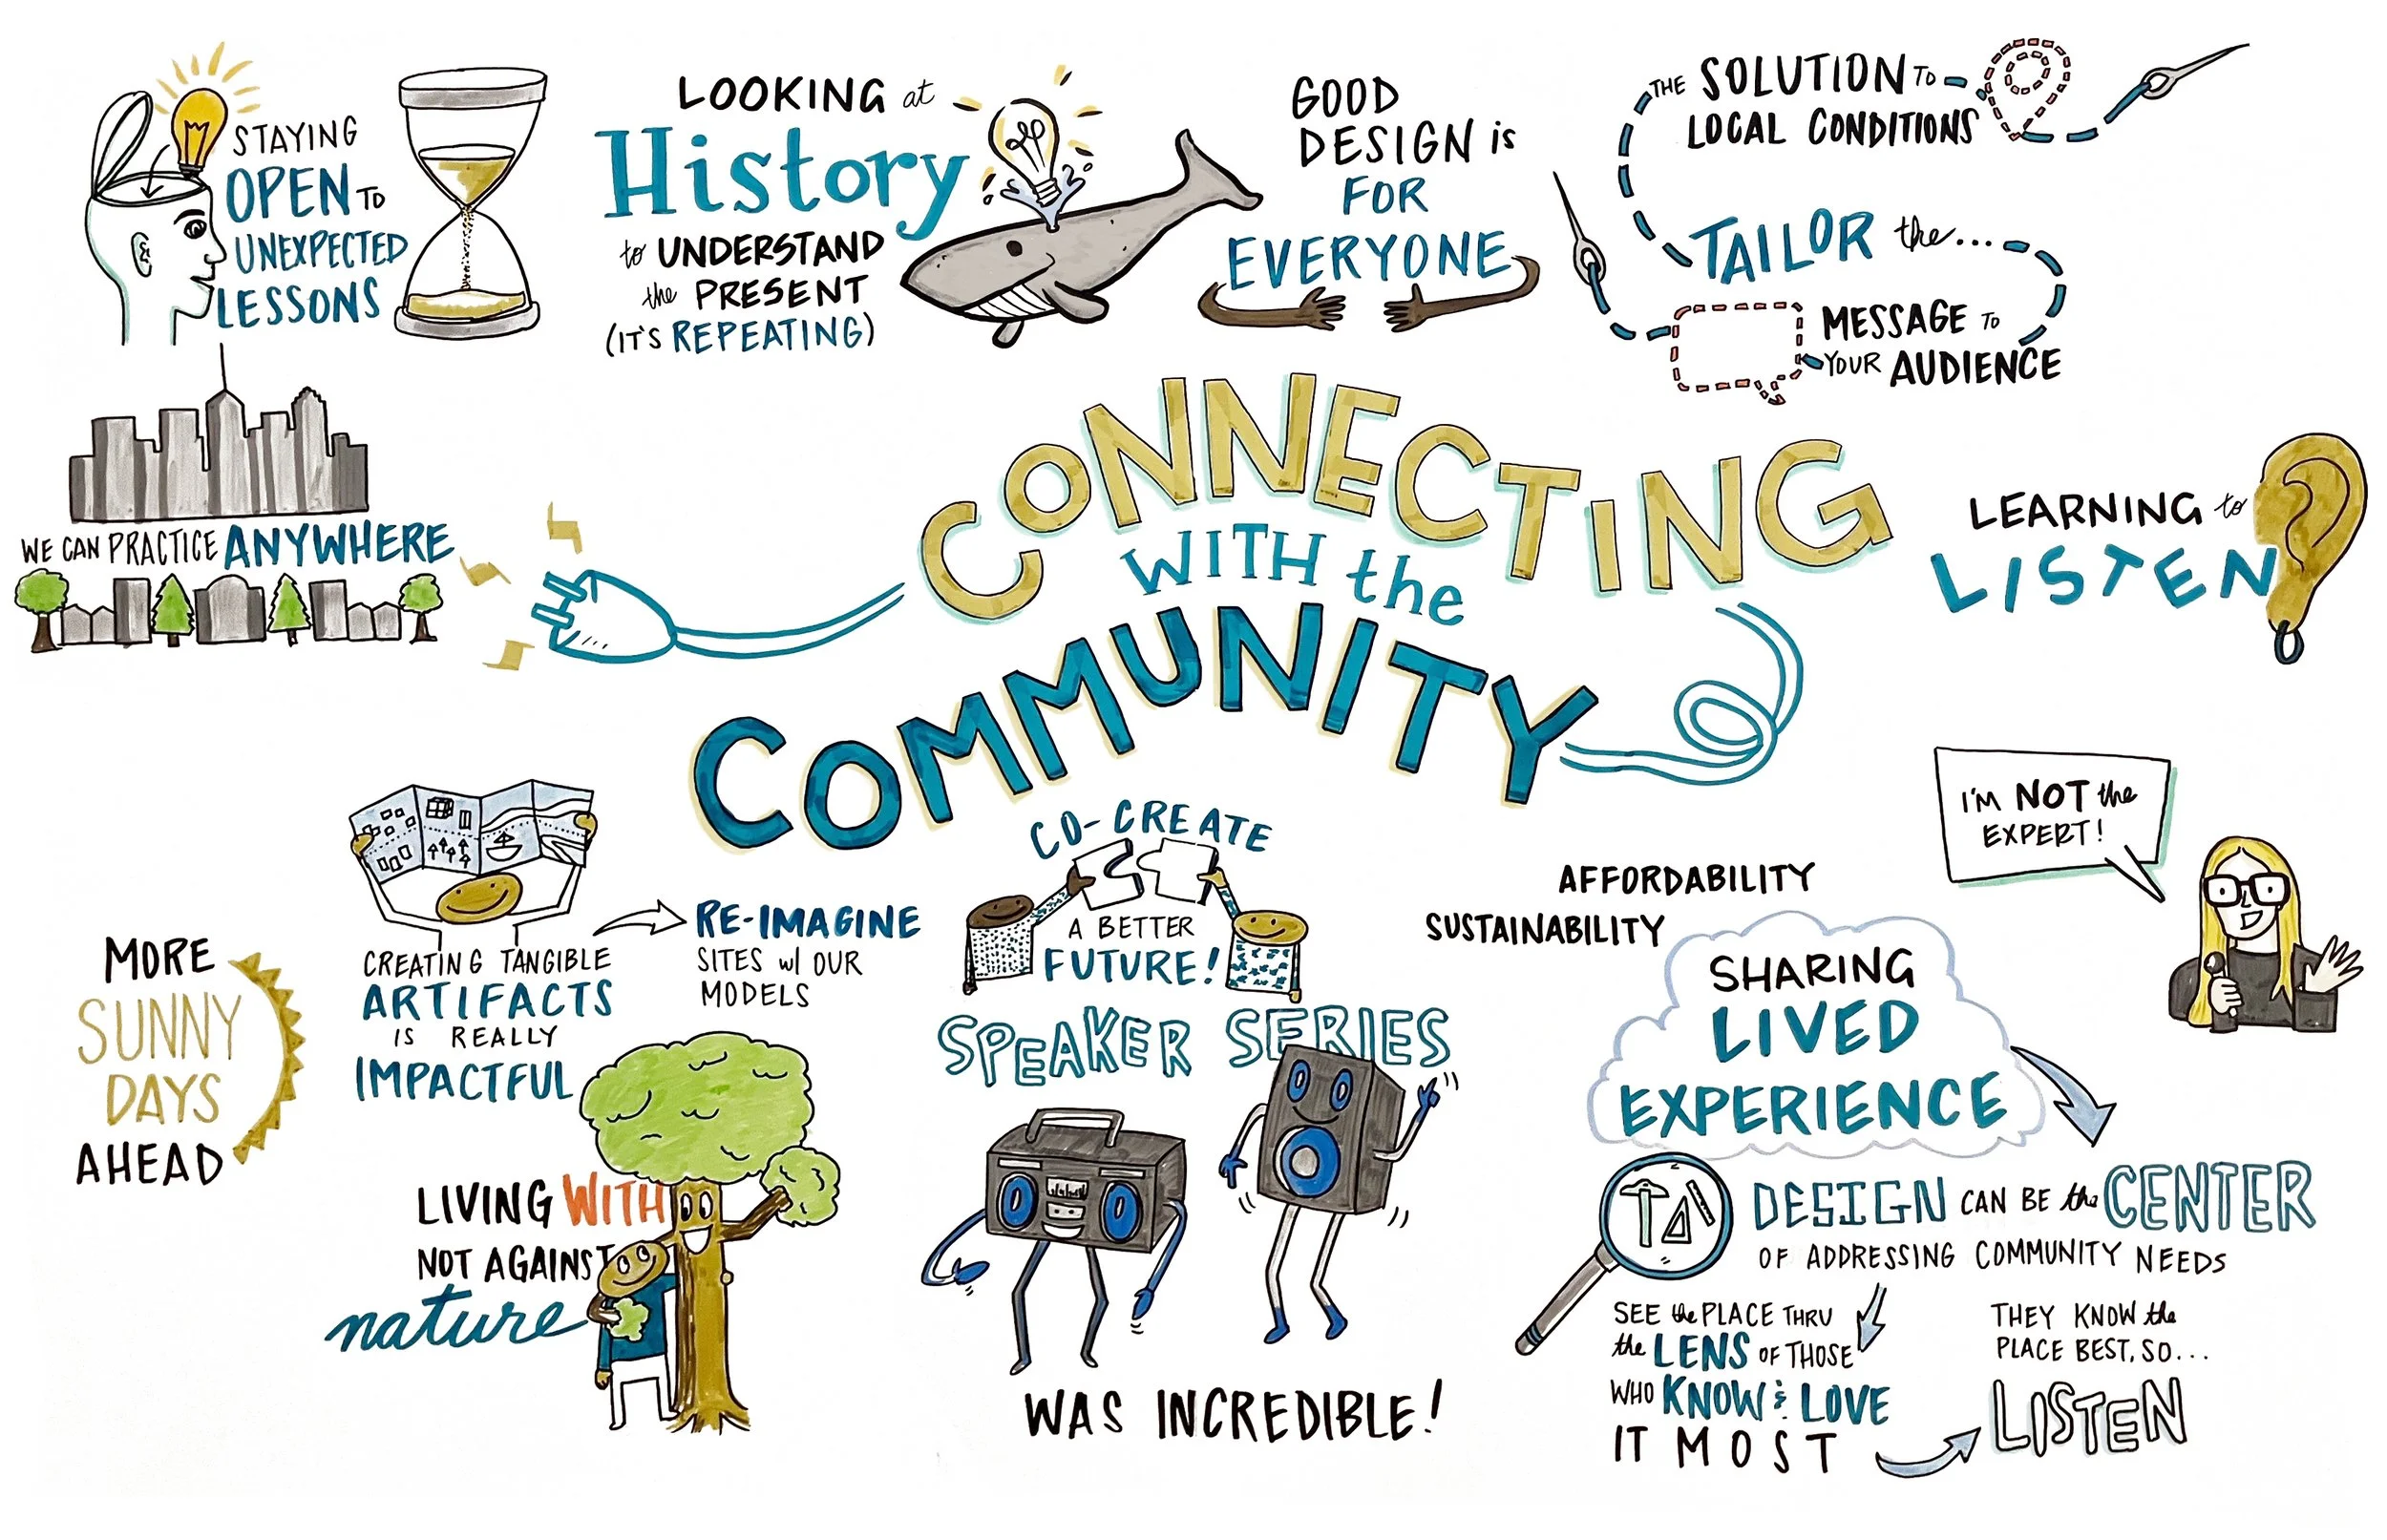 STAYING
OPEN TO
UNEXPECTED
LESSONS
LOOKING at
History
to UNDERSTAND
the PRESENT
(IT'S REPEATING)
GOOD
DESIGN is
FOR
EVERYONE
THE SOLUTION TO
LOCAL CONDITIONS
TAILOR the...
MESSAGE TO
YOUR AUDIENCE
WE CAN PRACTICE ANYWHERE
CONNECTING
WITH the
COMMUNITY
LEARNING to
LISTEN
I'M NOT the
EXPERT!
MORE
SUNNY
DAYS
AHEAD
CREATING TANGIBLE
ARTIFACTS
IS REALLY
IMPACTFUL
RE-IMAGINE
SITES w/ OUR
MODELS
CO-CREATE
A BETTER
FUTURE!
SPEAKER SERIES
WAS INCREDIBLE!
LIVING WITH
NOT AGAINST
nature
AFFORDABILITY
SUSTAINABILITY
SHARING
LIVED
EXPERIENCE
DESIGN CAN BE the CENTER
OF ADDRESSING COMMUNITY NEEDS
SEE the PLACE THRU
the LENS OF THOSE
WHO KNOW & LOVE
IT MOST
THEY KNOW the
PLACE BEST, SO...
LISTEN